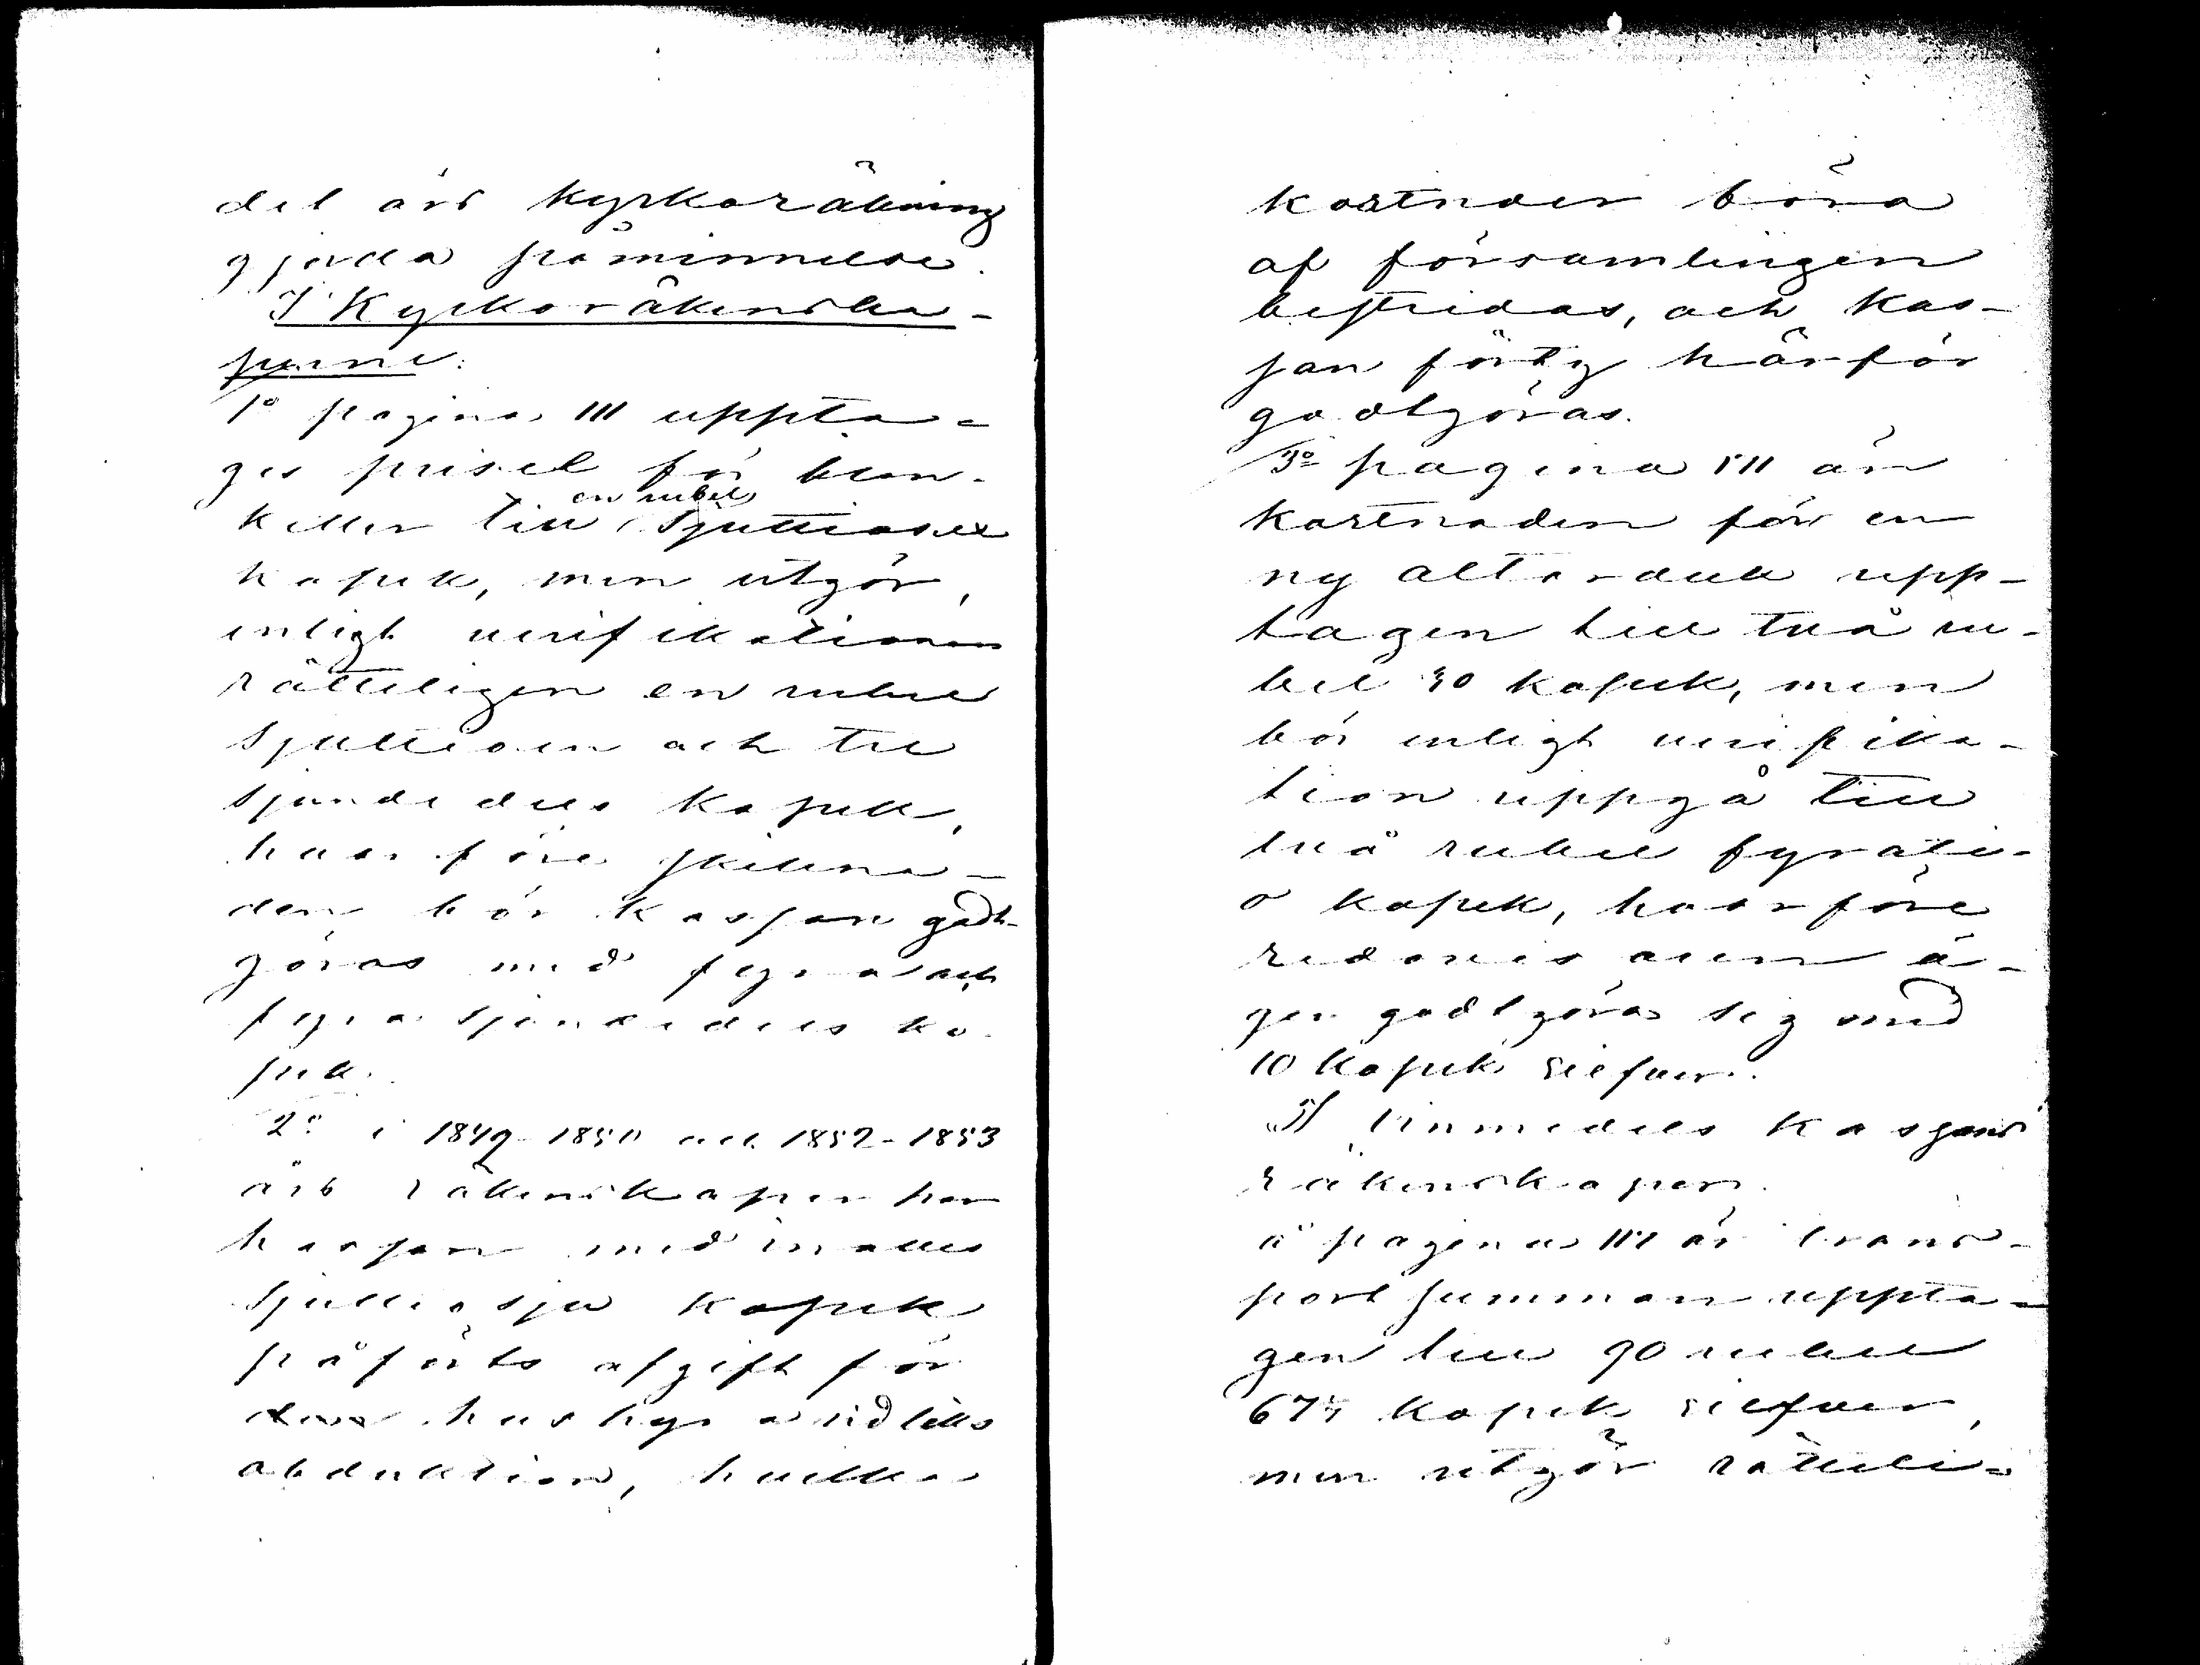 det års Kyrkoräkning
gjorda påminnelse.
I Kyrkoräkenska-
perne:
1o pagina 111 uppta-
ges priset för blan-
ketter till en rubel sjuttiosex
kopek, men utgör,
enligt verifikationen
rätteligen en rubel
sjuttioen och tre
sjundedels kopek,
hvarföre skilna-
den bör kassan godt-
göras med fyra och
fyra sjundedels ko-
pek.
2o i 1849-1850 och 1852-1853
års räkenskaper har
kassan med inalles
sjuttiosju kopek
påförts afgift för
hushyra vid
obduktion, hvilka
kostnader böra
af församlingen
bestridas, och kas-
san förty härför
godtgöras.
3o pagina 511 är
kostnaden för en
ny altarduk upp-
tagen till två ru-
bel 30 kopek, men
bör enligt verifika-
tion uppgå till
två rubel fyrati-
o kopek, hvarföre
redovisaren ä-
ger godtgöra sig med
10 kopek silfver.
II Vinmedels kassans
räkenskaper.
å pagina är trans-
port summan uppta-
gen till 90 rubel
67 kopek silfver,
men utgör rätteli-